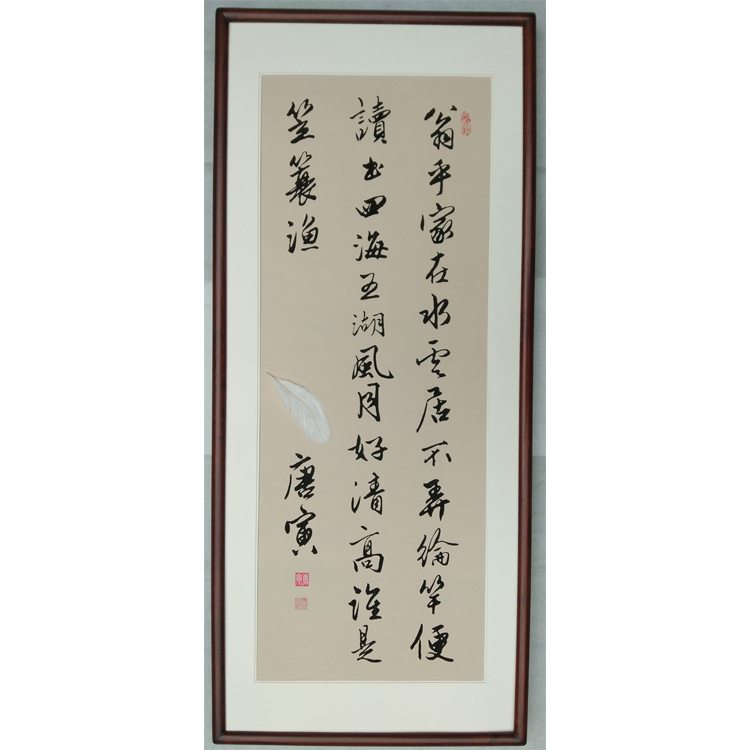 翁乎家在水雲居不弄綸竿便
讀書四海五湖風月好清高誰是
笠蓑漁
唐寅